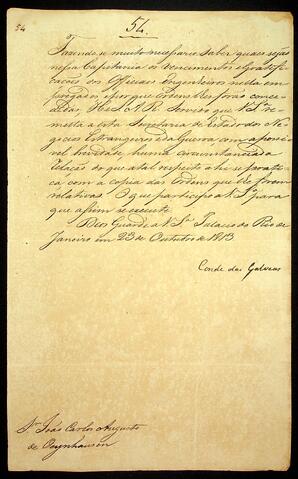 54
54.
Fazendo-se muito necessario saber quaes sejaõ
nessa Capitania os vencimentos e Gratifi-
cação dos Officiaes Engenheiros nella em
pregados, e por que ordens lhes foraõ conce-
didas: He S. A. R. Servido que V. S.ª re-
metta a esta Secretaria de Estado dos Ne-
gocios Estrangeiros e da Guerra com a possi-
vel brevidade, huma circumstanciada
Relação do que a tal respeito ahi se prati-
ca com a copia das Ordens que lhe forem
relativas. O que participo a V. S.ª para
que assim se execute.
Deos Guarde a V. S.ª Palacio do Rio de
Janeiro em 23 de Outubro de 1813
Conde das Galveas
Sr. João Carlos Augusto
de Oeynhausen